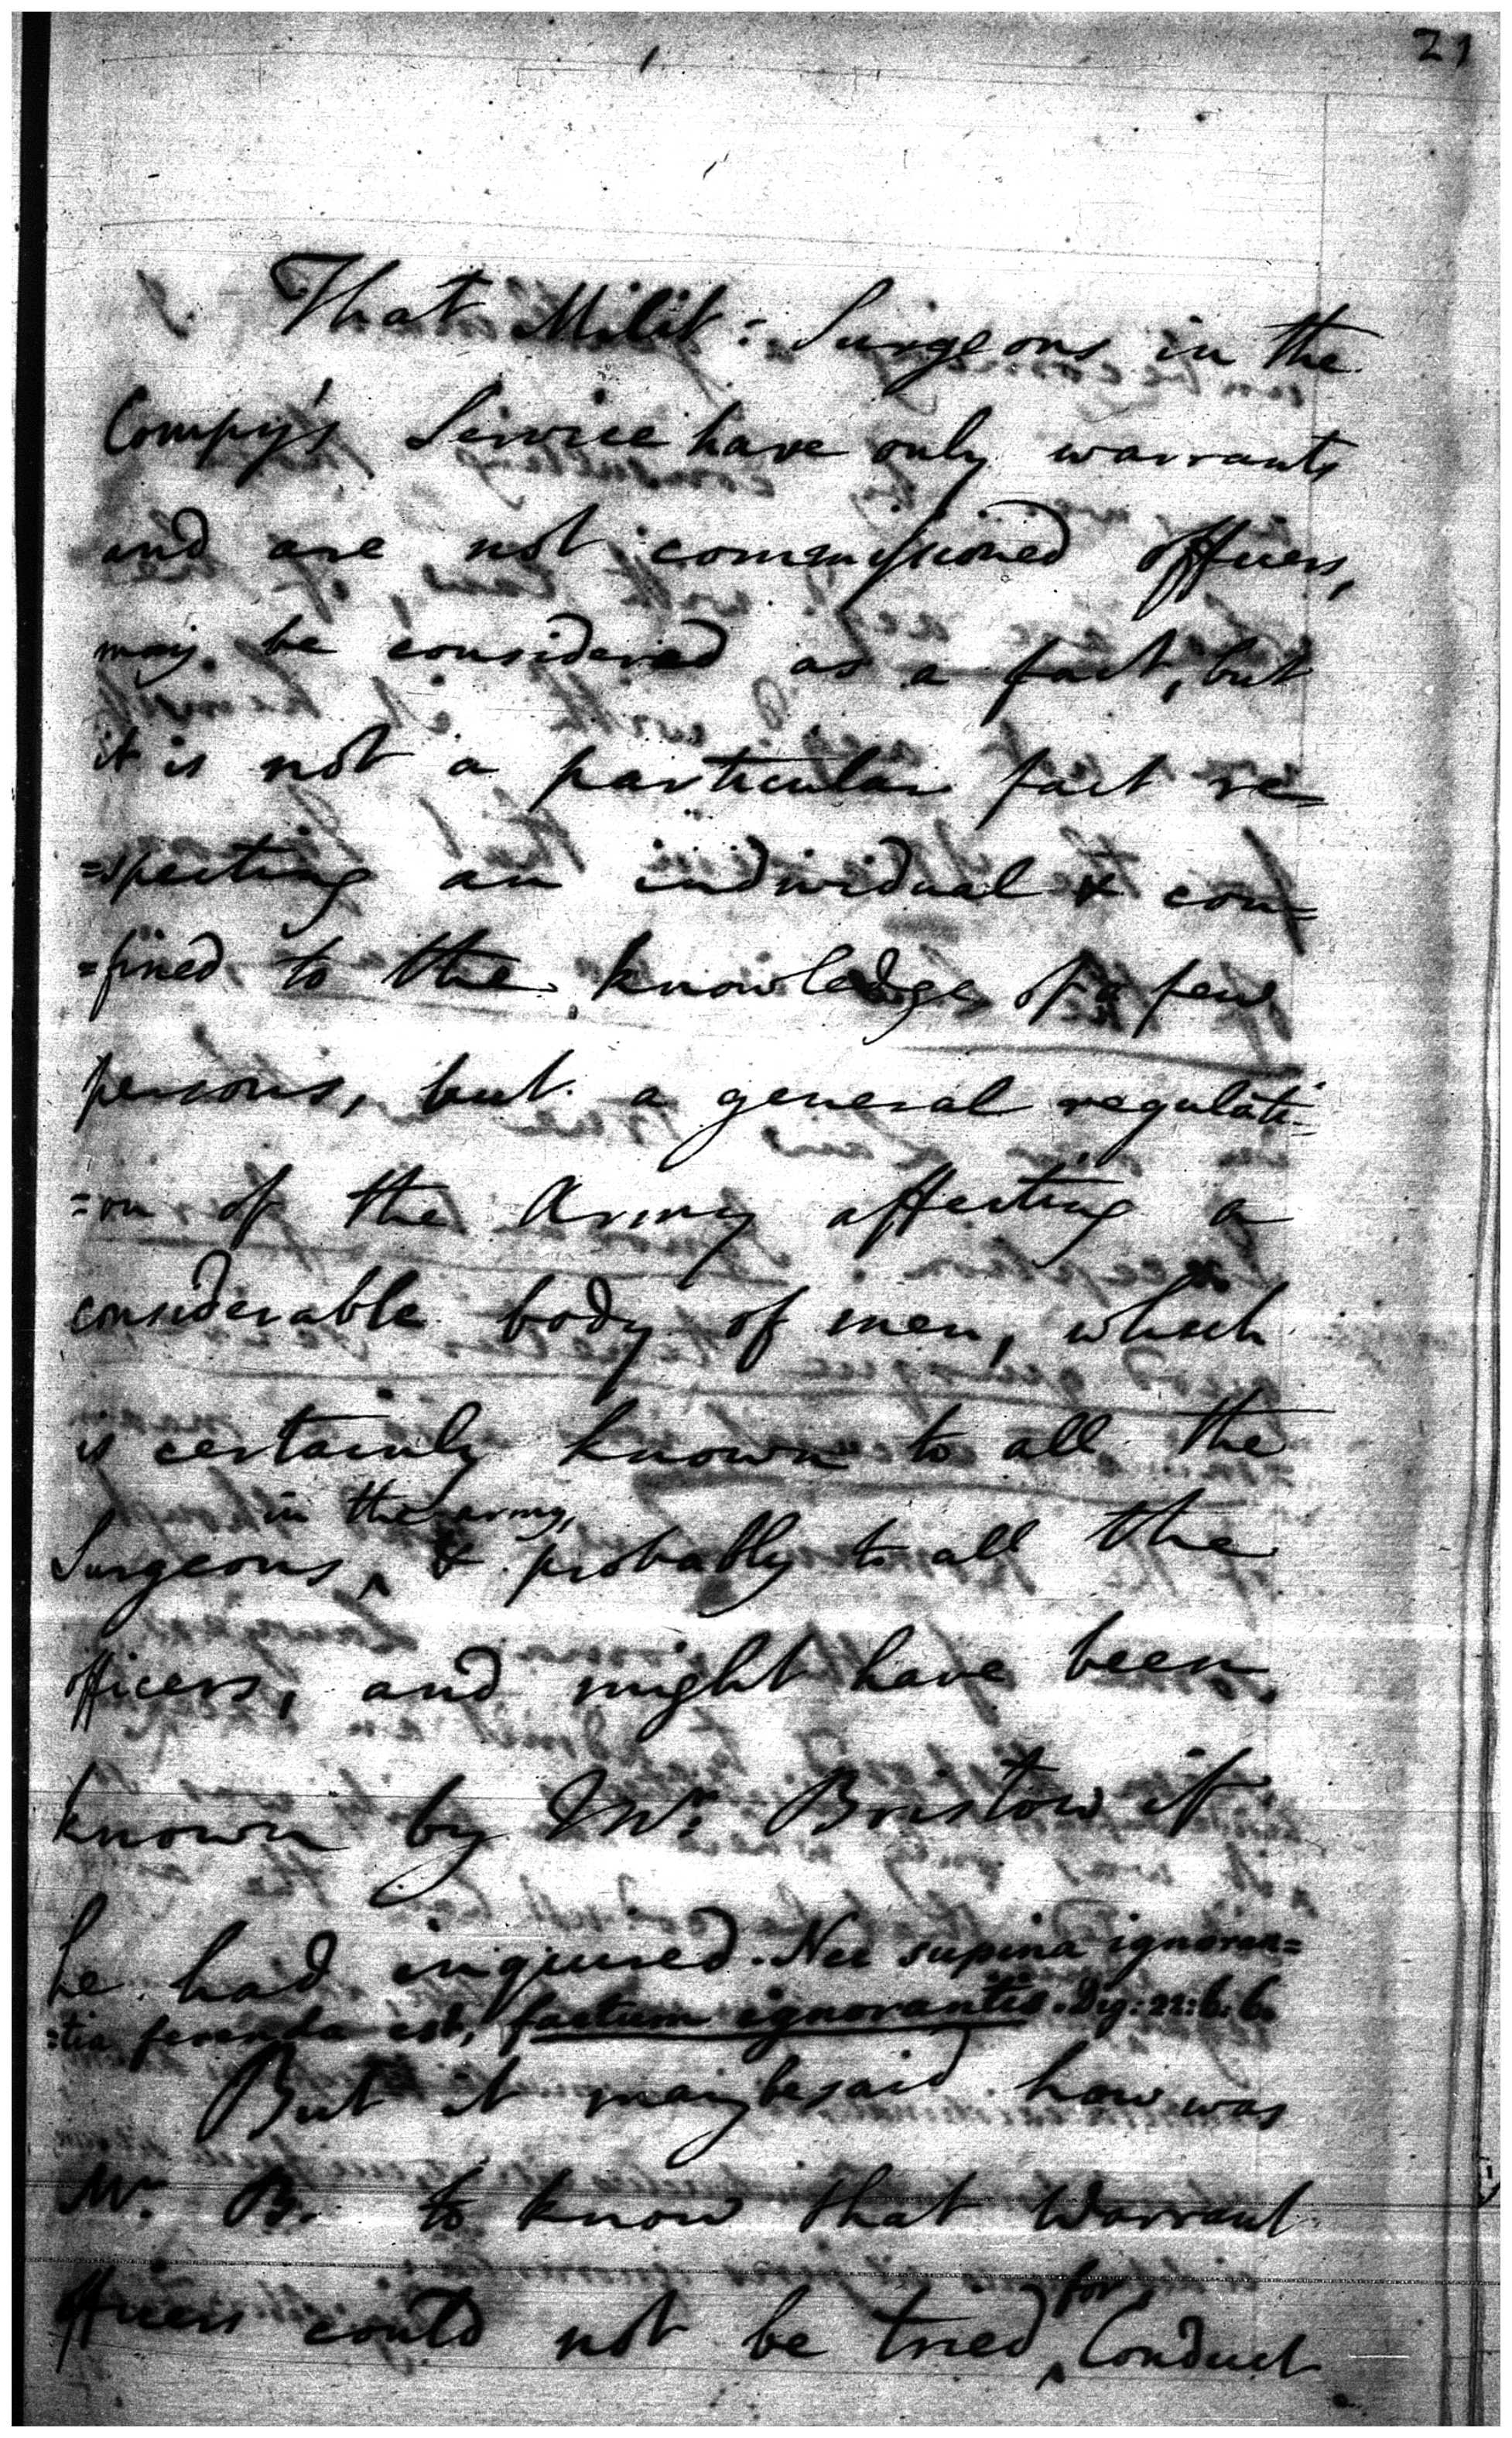 21
That Milit: Surgeons in the
Compy's Service have only warrants
and are not commissioned officers,
may be considered as a fact, but
it is not a particular fact re=
=specting an individual & con=
=fined to the knowledge of a few
persons, but a general regulati=
=on of the Army affecting a
considerable body of men, which
is certainly known to all the
in the army,
Surgeons, ‸ & probably to all the
officers, and might have been
known by Mr. Bristow if
he had inquired. Nec supina ignoran=
=tia ferenda est, factum ignorantis. Dig: 22: 6. 6.
But it may be said how was
Mr. B. to know that Warrant
for
officers could not be tried ‸ Conduct